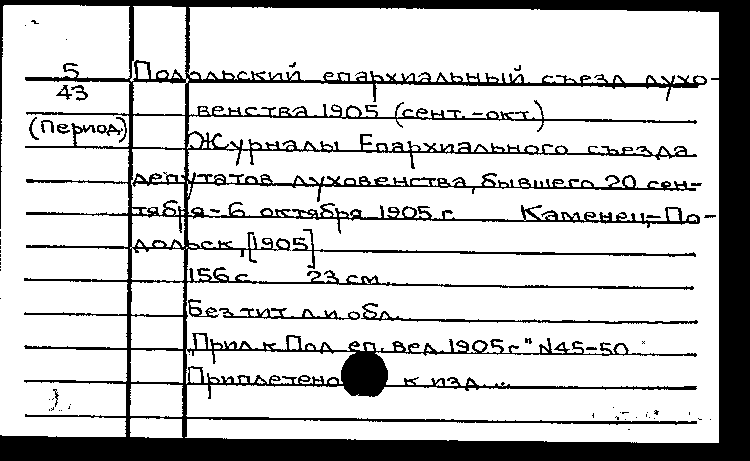 5 Подольский епархиальный съезд духо-
43 венства 1905 (сент.-окт.)
(Период.) Журналы Епархиального съезда
депутатов духовенства, бывшего 20 сен-
тября - 6 октября 1905 г. Каменец-По-
дольск, [1905]
156 с. 23 см.
Без тит. л. и обл.
"Прил. к Под. еп. вед. 1905 г." N45-50
Приплетено к изд.